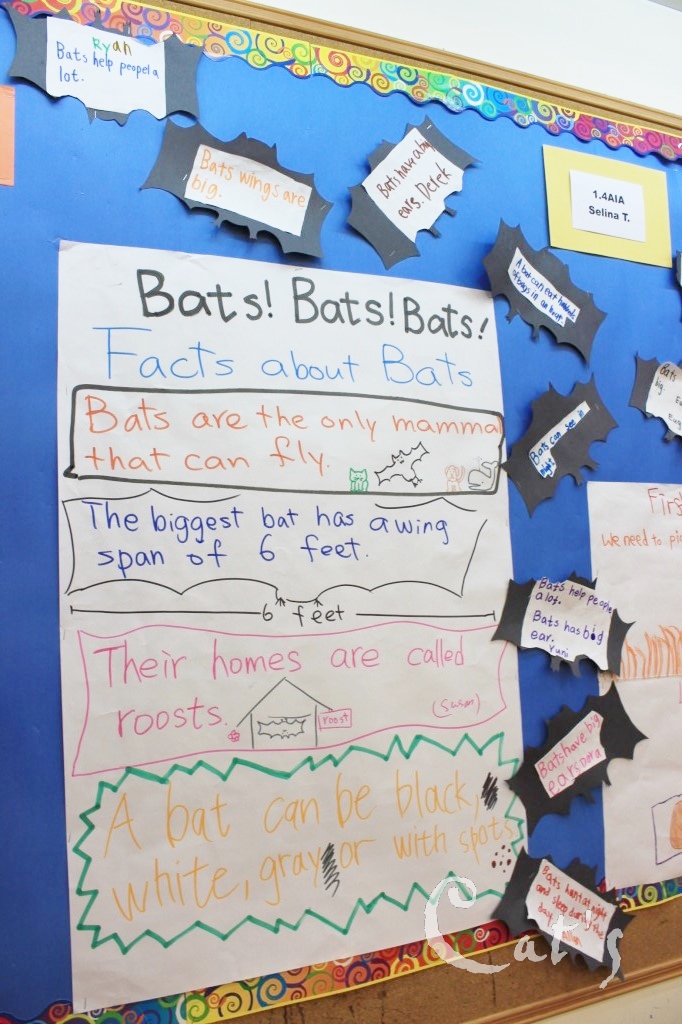 Ryan
Bats help peopel a
lot.
Bats wings are
big.
Bats have a big
ears. Derek
1.4AIA
Selina T.
A bat can eat hundreds
of bugs in an hour
Bats can see in
night
Bats
big.
Bats! Bats! Bats!
Facts about Bats
Bats are the only mammal
that can fly.
The biggest bat has a wing
span of 6 feet.
6 feet
Their homes are called
roosts.
roost
(Susan)
A bat can be black,
white, gray or with spots
Bats help people
a lot.
Bats has big
ear.
Yuni
Bats have big
ears Dora
Bats hunt at night
and sleep during the
day.
First
We need to pi
Cat's